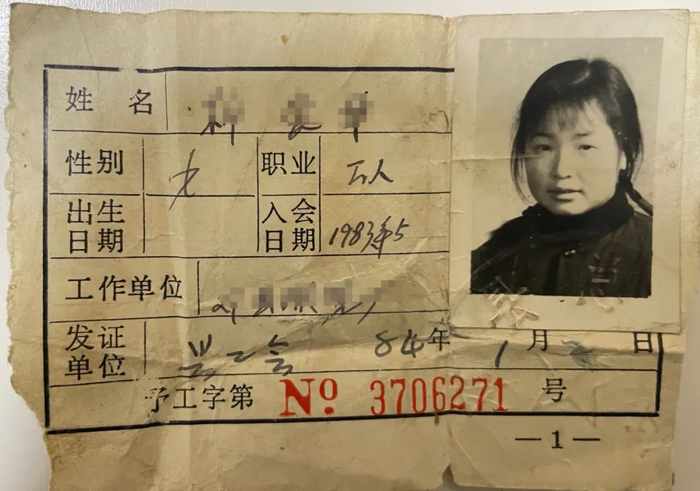 姓 名
性别 女 职业 工人
出生日期 入会日期 1983年5
工作单位
发证单位 工会 84年 1月 日
予工字第 No 3706271 号
—1—